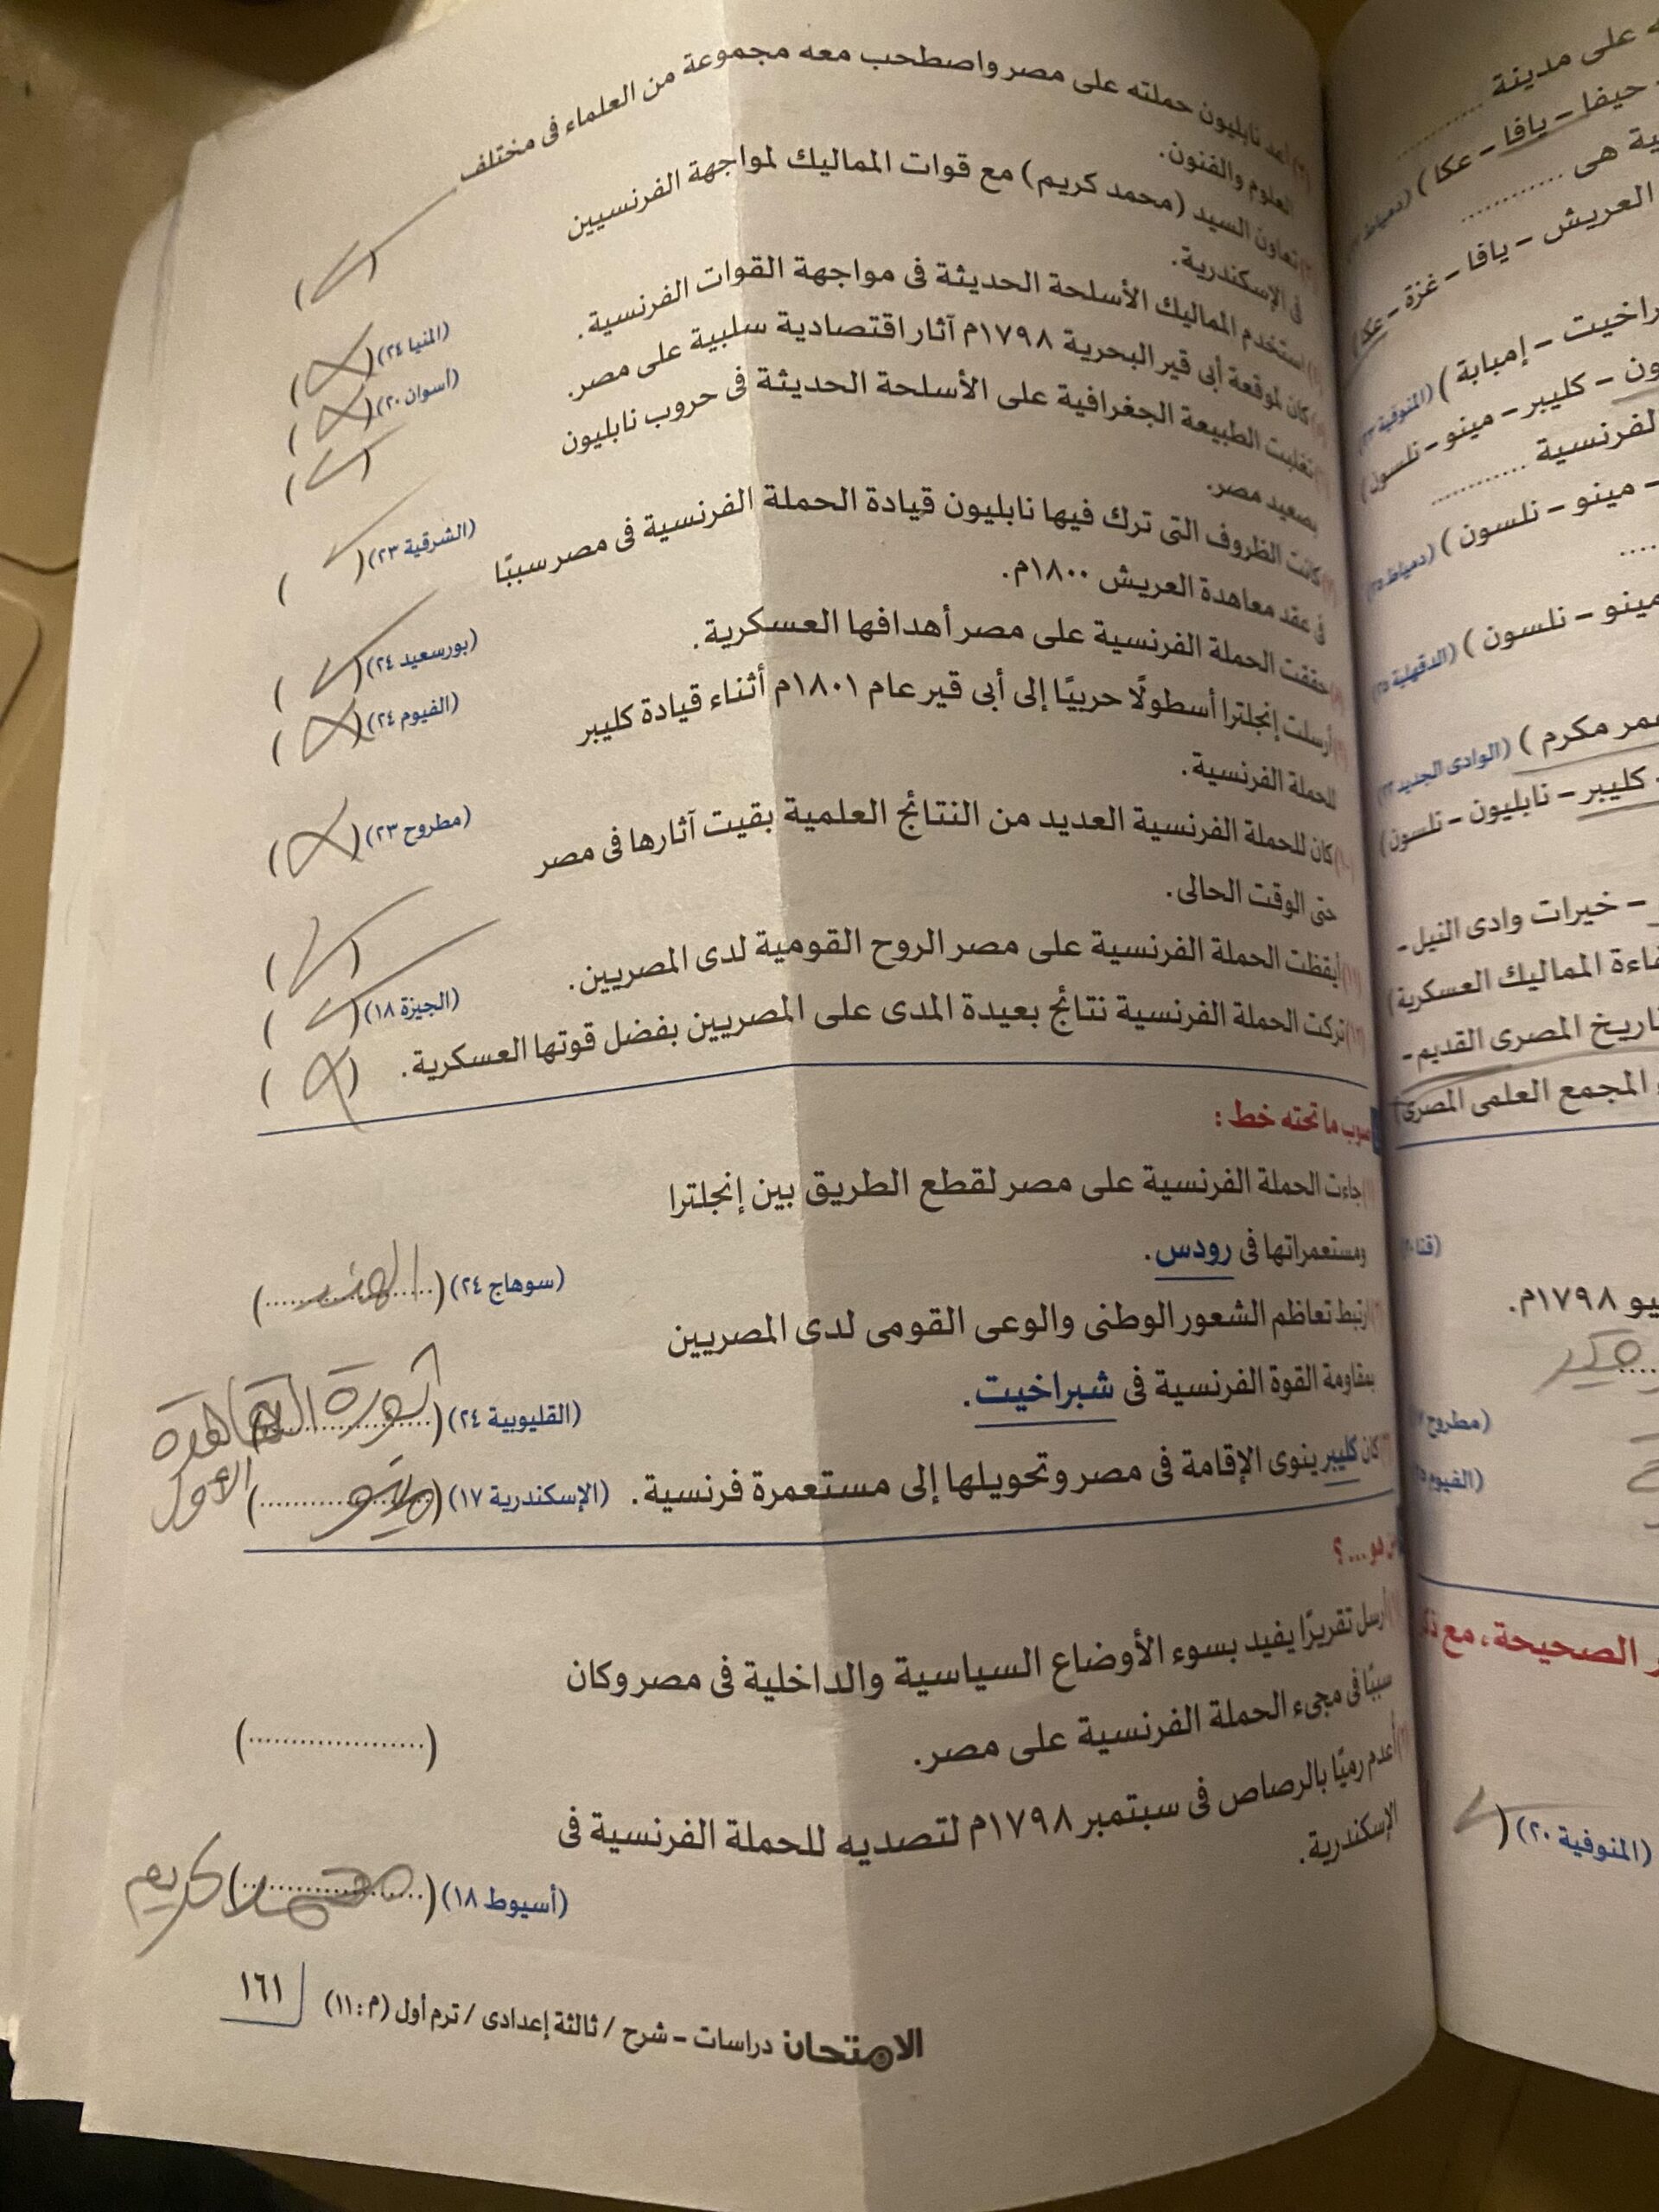 على مدينة
حيفا - يافا - عكا ) (دمياط
ية هى
العريش - يافا - غزة - عكا)
راخيت - إمبابة ) (المنوفية ٢٣)
ون - كليبر - مينو - نلسون)
لفرنسية
- مينو - نلسون ) (دمياط ٢٥)
مينو - نلسون ) (الدقهلية ٢٥)
مر مكرم ) (الوادى الجديد ٢٣)
- كليبر - نابليون - نلسون)
- خيرات وادى النيل -
فاءة المماليك العسكرية)
تاريخ المصرى القديم -
المجمع العلمى المصرى)
(قنا
يو ١٧٩٨م.
(مطروح
(الفيوم
الصحيحة، مع
(المنوفية ٢٠) (
أعد نابليون حملته على مصر واصطحب معه مجموعة من العلماء فى مختلف
العلوم والفنون. ( ✓ )
تعاون السيد (محمد كريم) مع قوات المماليك لمواجهة الفرنسيين
فى الإسكندرية. (المنيا ٢٤) ( ✗ )
استخدم المماليك الأسلحة الحديثة فى مواجهة القوات الفرنسية. (أسوان ٢٠) ( ✗ )
كان لموقعة أبى قير البحرية ١٧٩٨م آثار اقتصادية سلبية على مصر. ( ✓ )
تغلبت الطبيعة الجغرافية على الأسلحة الحديثة فى حروب نابليون
بصعيد مصر. (الشرقية ٢٣) ( ✓ )
كانت الظروف التى ترك فيها نابليون قيادة الحملة الفرنسية فى مصر سببًا
فى عقد معاهدة العريش ١٨٠٠م. (بورسعيد ٢٤) ( ✓ )
حققت الحملة الفرنسية على مصر أهدافها العسكرية. (الفيوم ٢٤) ( ✗ )
أرسلت إنجلترا أسطولًا حربيًا إلى أبى قير عام ١٨٠١م أثناء قيادة كليبر
للحملة الفرنسية. (مطروح ٢٣) ( ✗ )
كان للحملة الفرنسية العديد من النتائج العلمية بقيت آثارها فى مصر
حتى الوقت الحالى. ( ✓ )
أيقظت الحملة الفرنسية على مصر الروح القومية لدى المصريين. (الجيزة ١٨) ( ✓ )
تركت الحملة الفرنسية نتائج بعيدة المدى على المصريين بفضل قوتها العسكرية. ( ✗ )
صوب ما تحته خط :
جاءت الحملة الفرنسية على مصر لقطع الطريق بين إنجلترا
ومستعمراتها فى رودس. (سوهاج ٢٤) (الهند)
ارتبط تعاظم الشعور الوطنى والوعى القومى لدى المصريين
بمقاومة القوة الفرنسية فى شبراخيت. (القليوبية ٢٤) (ثورة القاهرة
الاول
كان كليبر ينوى الإقامة فى مصر وتحويلها إلى مستعمرة فرنسية. (الإسكندرية ١٧) (مينو)
من هو...؟
أرسل تقريرًا يفيد بسوء الأوضاع السياسية والداخلية فى مصر وكان
سببًا فى مجىء الحملة الفرنسية على مصر. (....................)
أعدم رميًا بالرصاص فى سبتمبر ١٧٩٨م لتصديه للحملة الفرنسية فى
الإسكندرية. (أسيوط ١٨) (محمد كريم)
الامتحان دراسات - شرح / ثالثة إعدادى / ترم أول (م : ١١) ١٦١